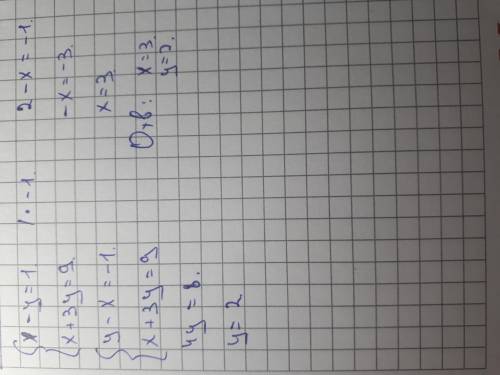 x - y = 1. | · -1
x + 3y = 9.
y - x = -1.
x + 3y = 9
4y = 8.
y = 2
2 - x = -1.
-x = -3.
x = 3
Отв: x = 3.
y = 2.